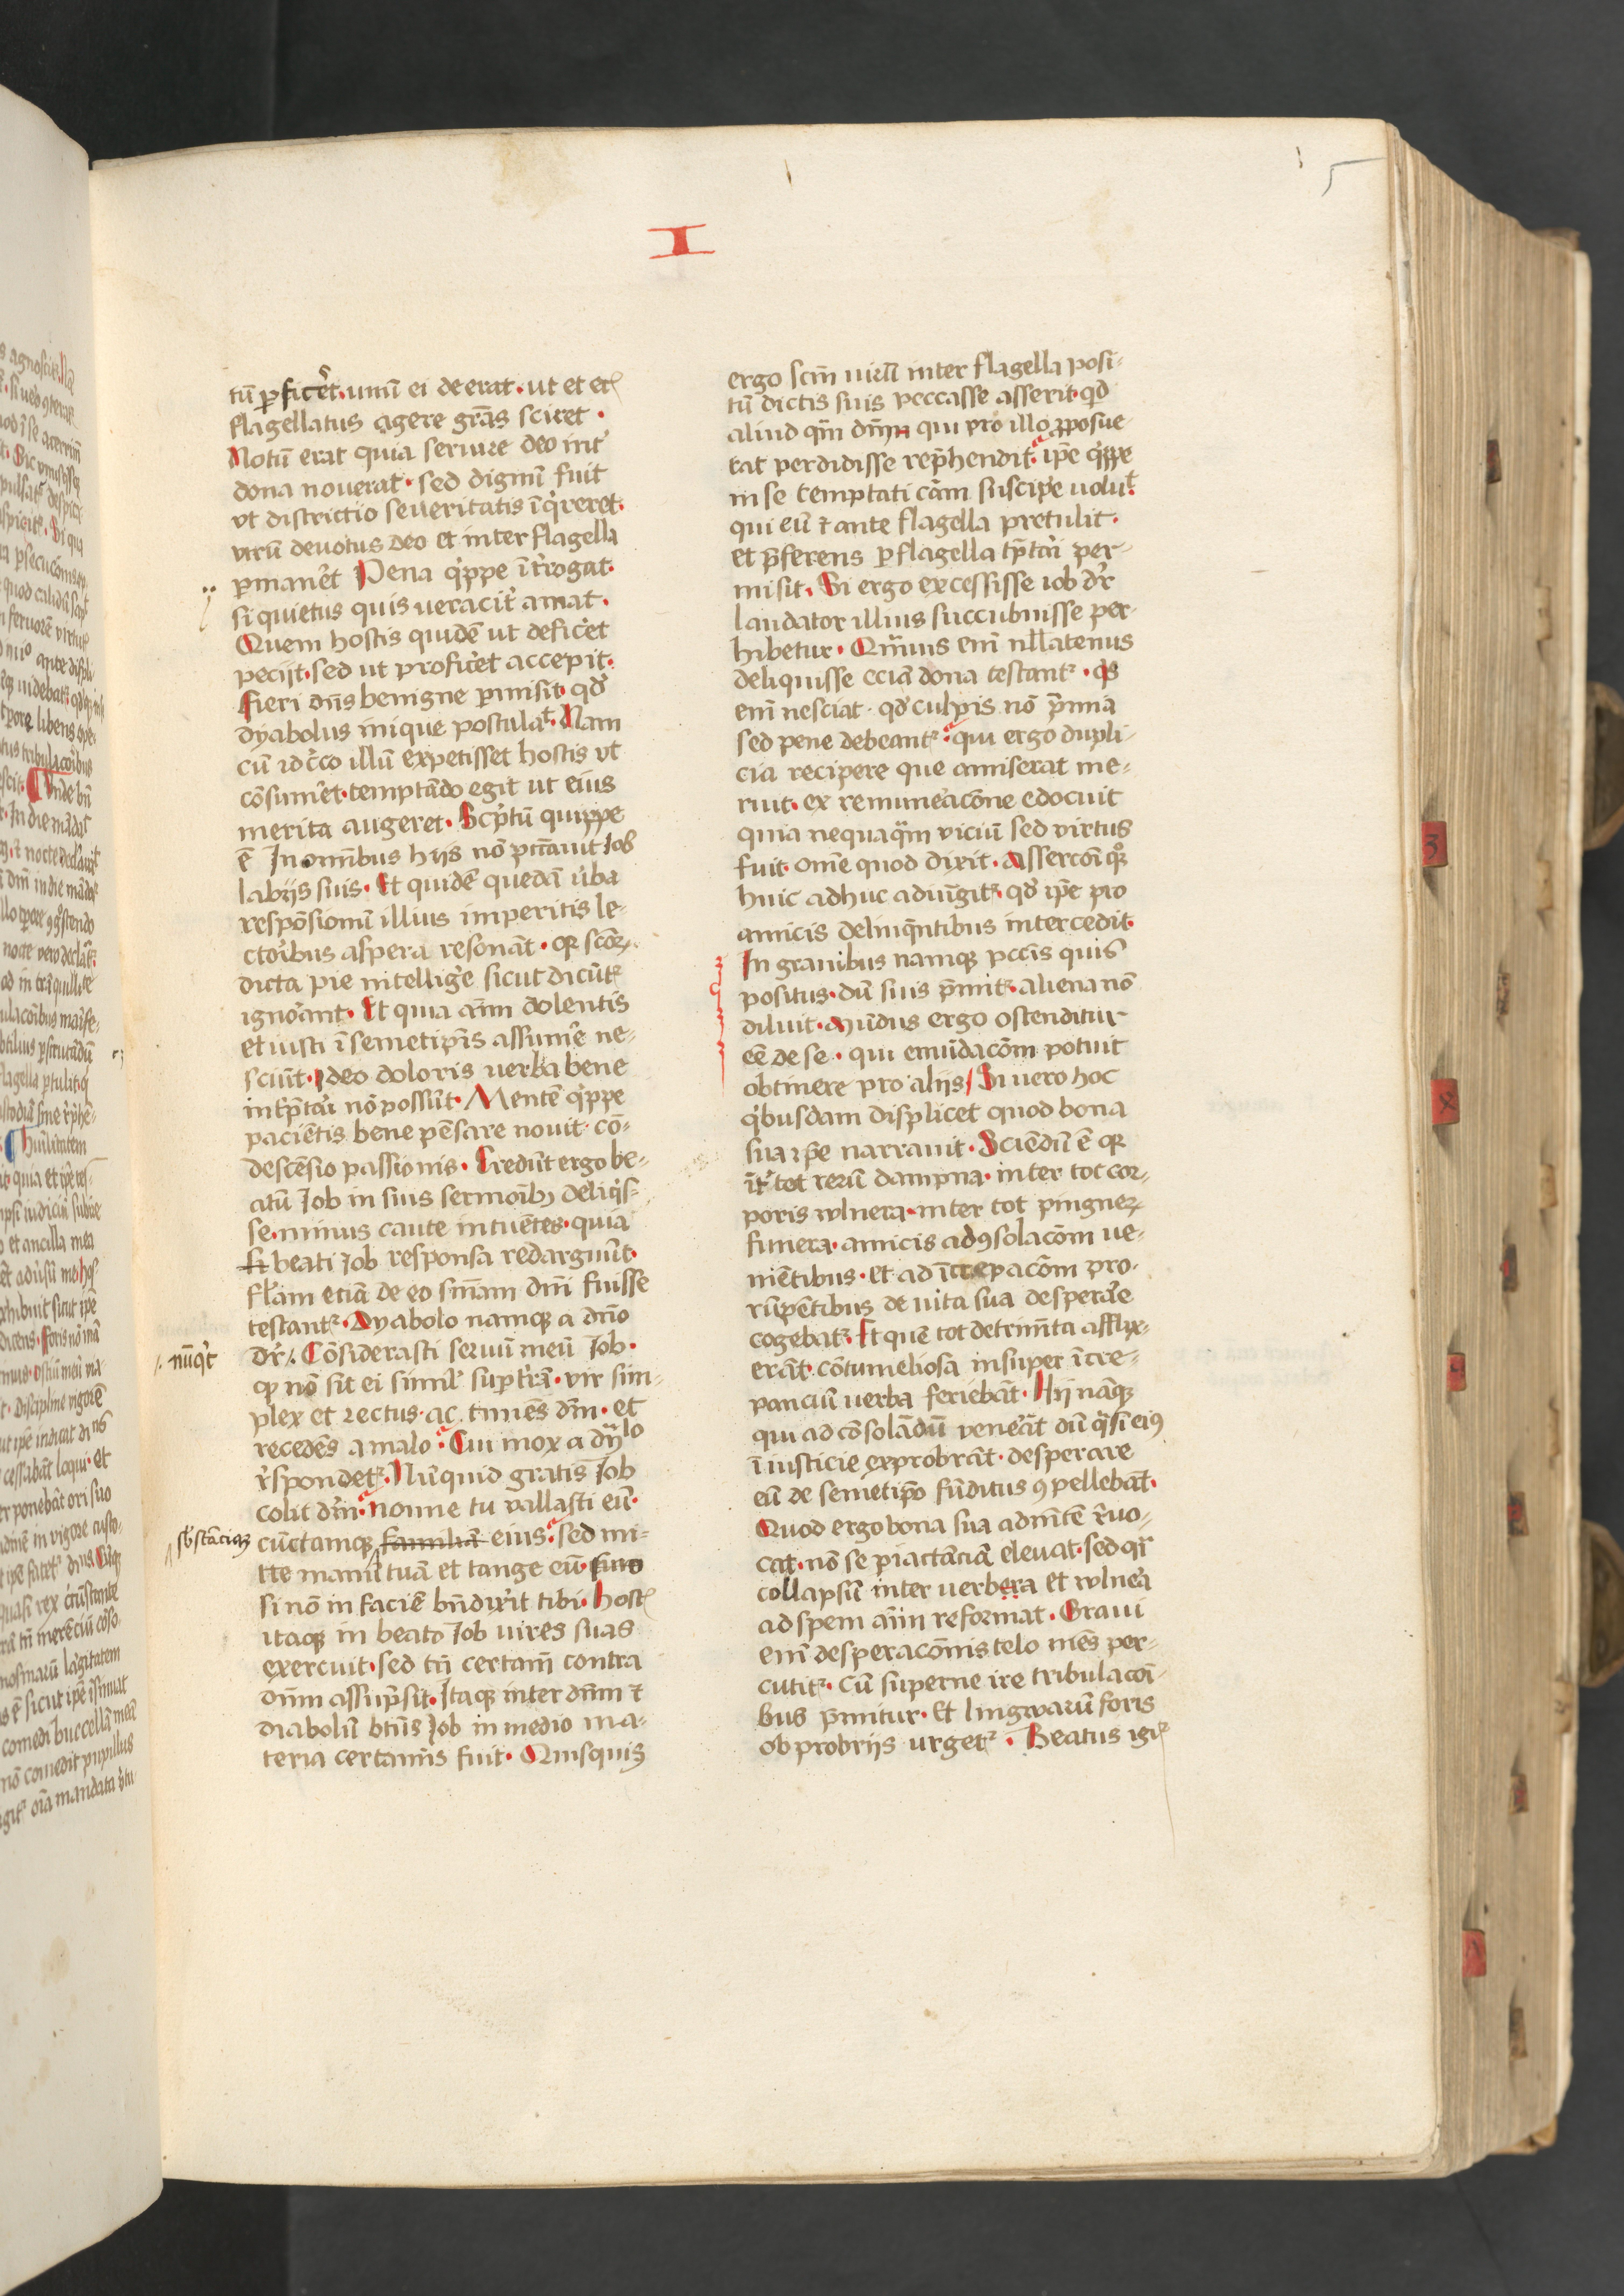 5
I
tū ꝑficeret · unū ei deerat · ut et etͥ
flagellatus agere gr̄as sciret ·
Notū erat quia seruire deo int̓
dona nouerat · sed dignū fuit
vt districtio seueritatis īq̓reret ·
vtrū deuotus deo et inter flagella
ꝑman̓et Pena q̓ppe īt̓rogat ·
si quietus quis ueracit̓ amat ·
Quem hostis quidē ut defic̓et
peciit · sed ut profic̓et accepit ·
Fieri dn̄s benigne ꝑmisit · qd̓
dyabolus inique postulat · Nam
cū idc̓co illū expetisset hostis vt
cōsum̓et · temptādo egit ut eius
merita augeret · Sc̓ptū quippe
ē In om̄ibus hijs nō pc̄cauit Iob
labijs suis · Et quidē quedā ūba
respōsionū illius imperitis le-
ctoribus aspera resonāt · qꝛ scōꝝ
dicta pie intellig̓e sicut dicūtᷣ
ignorant · Et quia aīm dolentis
et iusti ī semetip̄is assum̓e ne-
sciūt · Ideo doloris verba bene
int̓p̄tari nō possūt · Mentē q̓ppe
paciētis bene pēsare nouit · cō-
descēsio passionis · Credūt ergo be-
atū Iob in suis sermōibꝫ deliq̓s-
se · minus caute intuētes · quia
si beati Iob responsa redarguūt ·
fl̄am etiā de eo sn̄iam dn̄i fuisse
testantᷣ · Dyabolo namqꝫ a dn̄o
nūq̓t
dr̄ /. Cōsiderasti seruū meū Iob ·
ꝙ nō sit ei simil̓ suꝑ t̓rā · vir sim-
plex et rectus · ac timēs dm̄ · et
recedēs a malo · Cui mox a dyᷓlo
r̓spondetᷣ · Nūquid gratis Iob
colit dm̄ · nonne tu vallasti eū ·
sb̓stāciāqꝫ
cūctamqꝫ familiā eius · sed mi-
tte manū tuā et tange eū · sino
si nō in faciē bn̄dix̓it tibi · Hostͥ
itaqꝫ in beato Iob vires suas
exercuit · sed tn̄ certam̄ contra
dn̄m assūpsit · Itaqꝫ inter dn̄m ⁊
diabolū bt̄us Iob in medio ma-
teria certamīs fuit · Quisquis
ergo scm̄ uirū inter flagella posi-
tū dictis suis peccasse asserit · qd
aliud qm̄ dn̄m qui pro illo ꝓposue
rat perdidisse rep̄hendit · ip̄e q̓ppe
in se temptati cām suscip̓e uoluit
qui eū ⁊ ante flagella pretulit ·
et p̄ferens ꝑ flagella tp̄tari per-
misit · Si ergo excessisse iob dr̄
laudator illius succubuisse per-
hibetur · Quīuis em̄ nllatenus
deliquisse eciā dona testantᷣ · q̓s
em̄ nesciat · qd̓ culpis nō p̄mia
sed pene debeantᷣ · qui ergo dupli-
cia recipere que amiserat me-
ruit · ex remuneacōne edocuit
quia nequaq̄m viciū sed virtus
fuit · om̄e quod dixit · Assercōi qͦꝫ
huic adhuc adiūgitᷣ · qd̓ ip̄e pro
amicis delinq̄ntibus intercedit ·
In grauibus namqꝫ pcc̄is quis
positus · dū suis p̄mitᷣ · aliena nō
diluit · Mūdus ergo ostenditur
eē de se · qui emūdacōm potuit
obtinere pro alijs / Si vero hoc
q̓busdam displicet quod bona
sua ip̄e narrauit · Sciēdū ē qꝛ
īt̓ tot rerū dampna · inter tot cor-
poris wlnera · inter tot pingneꝝ
funera · amicis ad ꝯsolacōm ue-
niētibus · et ad īcrepacōm pro-
rūpētibus de uita sua desperare
cogebatᷣ · Et quē tot detrim̄ta afflix-
erāt · cōtumeliosa insuper īcre-
panciū uerba feriebāt · Hij nāqꝫ
qui ad cōsolādū venerāt dū q̓si eiꝯ
īiusticie exprobrāt · desperare
eū de semetip̄o fūditus ꝯpellebāt ·
Quod ergo bona sua ad mētē r̓uo-
cat · nō se piactāciā eleuat · sed q̓si
collapsū inter verbera et wlnera
ad spem aīm reformat · Graui
em̄ desperacōnis telo mēs per-
cutitᷣ · cū superne ire tribulacōi-
bus p̄mitur · et lingwarū foris
obprobrijs urgetᷣ · Beatus igiᷣ